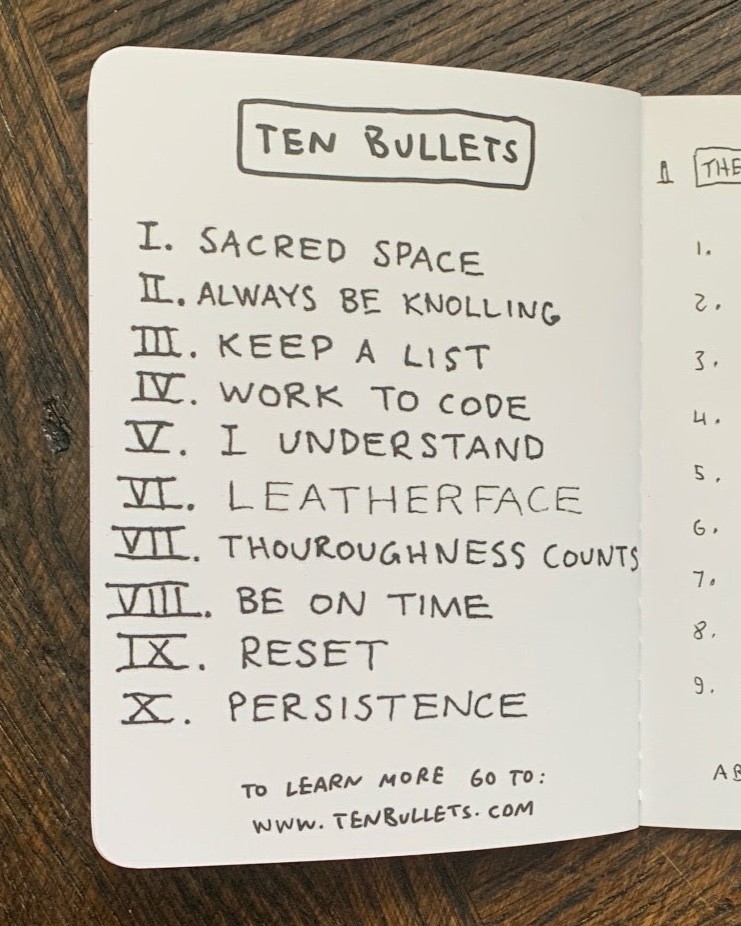 TEN BULLETS
I. SACRED SPACE
II. ALWAYS BE KNOLLING
III. KEEP A LIST
IV. WORK TO CODE
V. I UNDERSTAND
VI. LEATHERFACE
VII. THOUROUGHNESS COUNTS
VIII. BE ON TIME
IX. RESET
X. PERSISTENCE
TO LEARN MORE GO TO:
WWW.TENBULLETS.COM
THE
1.
2.
3.
4.
5.
6.
7.
8.
9.